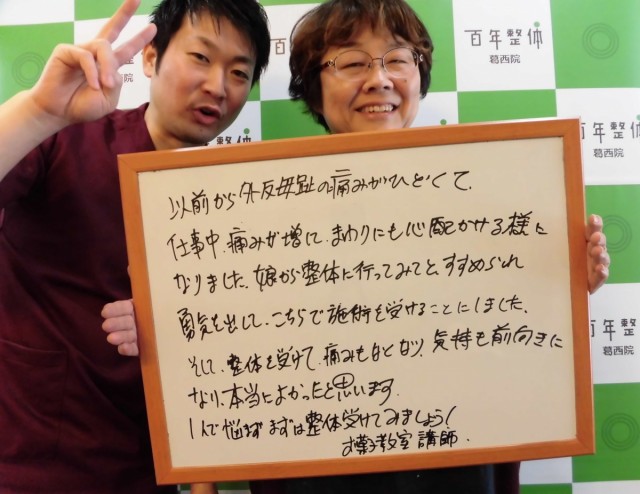 百年整体
葛西院
百年整体
葛西院
百年整体
葛西院
百年整体
葛西院
以前から外反母趾の痛みがひどくて、
仕事中、痛みが増して、まわりにも心配かける様に
なりました。娘から整体に行ってみてと、すすめられ
勇気を出して、こちらで施術を受けることにしました。
そして、整体を受けて、痛みも白となり、気持も前向きに
なり、本当によかったと思います。
1人で悩まず まずは整体受けてみましょう!
お菓子教室 講師.